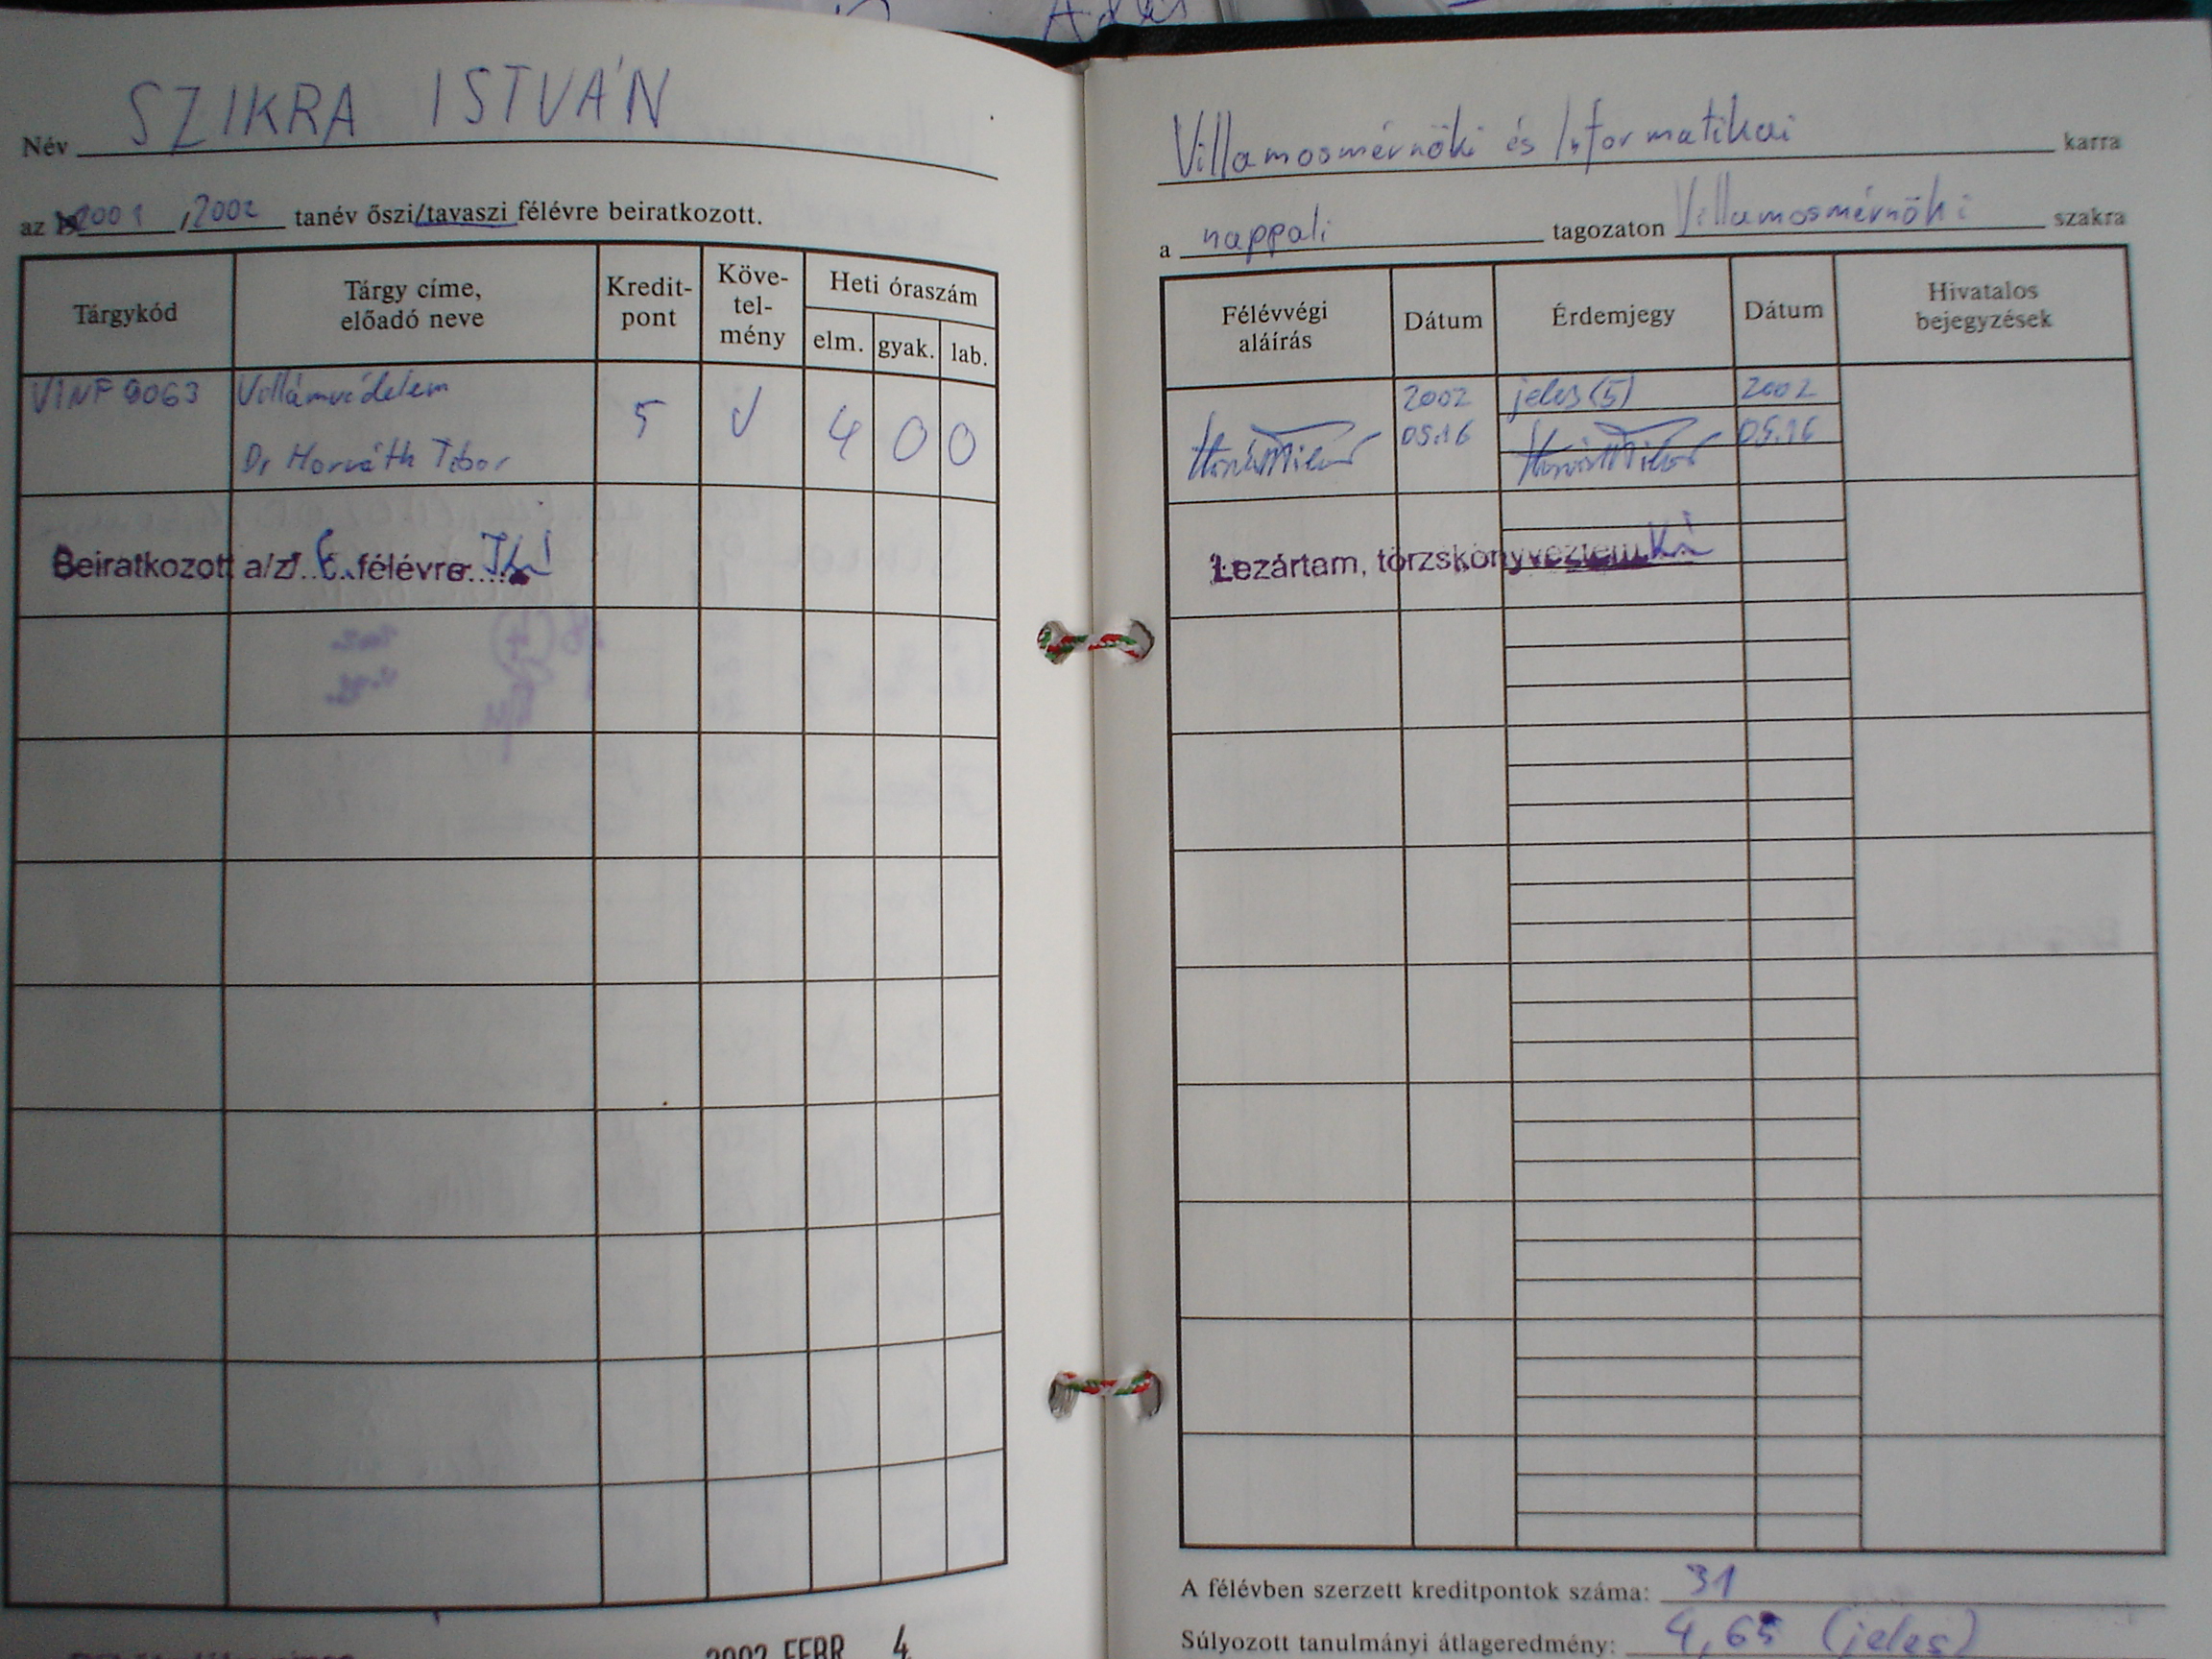 Név SZIKRA ISTVÁN
az 2001/2002 tanév őszi/tavaszi félévre beiratkozott.
Tárgykód
Tárgy címe,
előadó neve
Kredit-
pont
Köve-
tel-
mény
Heti óraszám
elm. gyak. lab.
VINF9063 Villámvédelem
Dr Horváth Tibor
5 V 4 0 0
Beiratkozott a/z 6. félévre
2002 FEBR 4
Villamosmérnöki és Informatikai karra
a nappali tagozaton Villamosmérnöki szakra
Félévvégi
aláírás
Dátum
Érdemjegy
Dátum
Hivatalos
bejegyzések
2002 jeles (5) 2002
Horváth Tibor 05.16 Horváth Tibor 05.16
Lezártam, törzskönyveztem
A félévben szerzett kreditpontok száma: 31
Súlyozott tanulmányi átlageredmény: 4,65 (jeles)